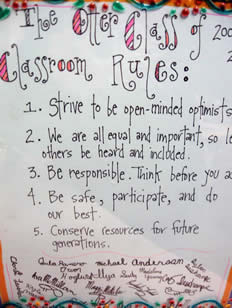 The Otter Class of 200
Classroom Rules:
1. Strive to be open-minded optimists
2. We are all equal and important, so le
others be heard and included.
3. Be responsible. Think before you a
4. Be safe, participate, and do
our best.
5. Conserve resources for future
generations.
michael Anderson